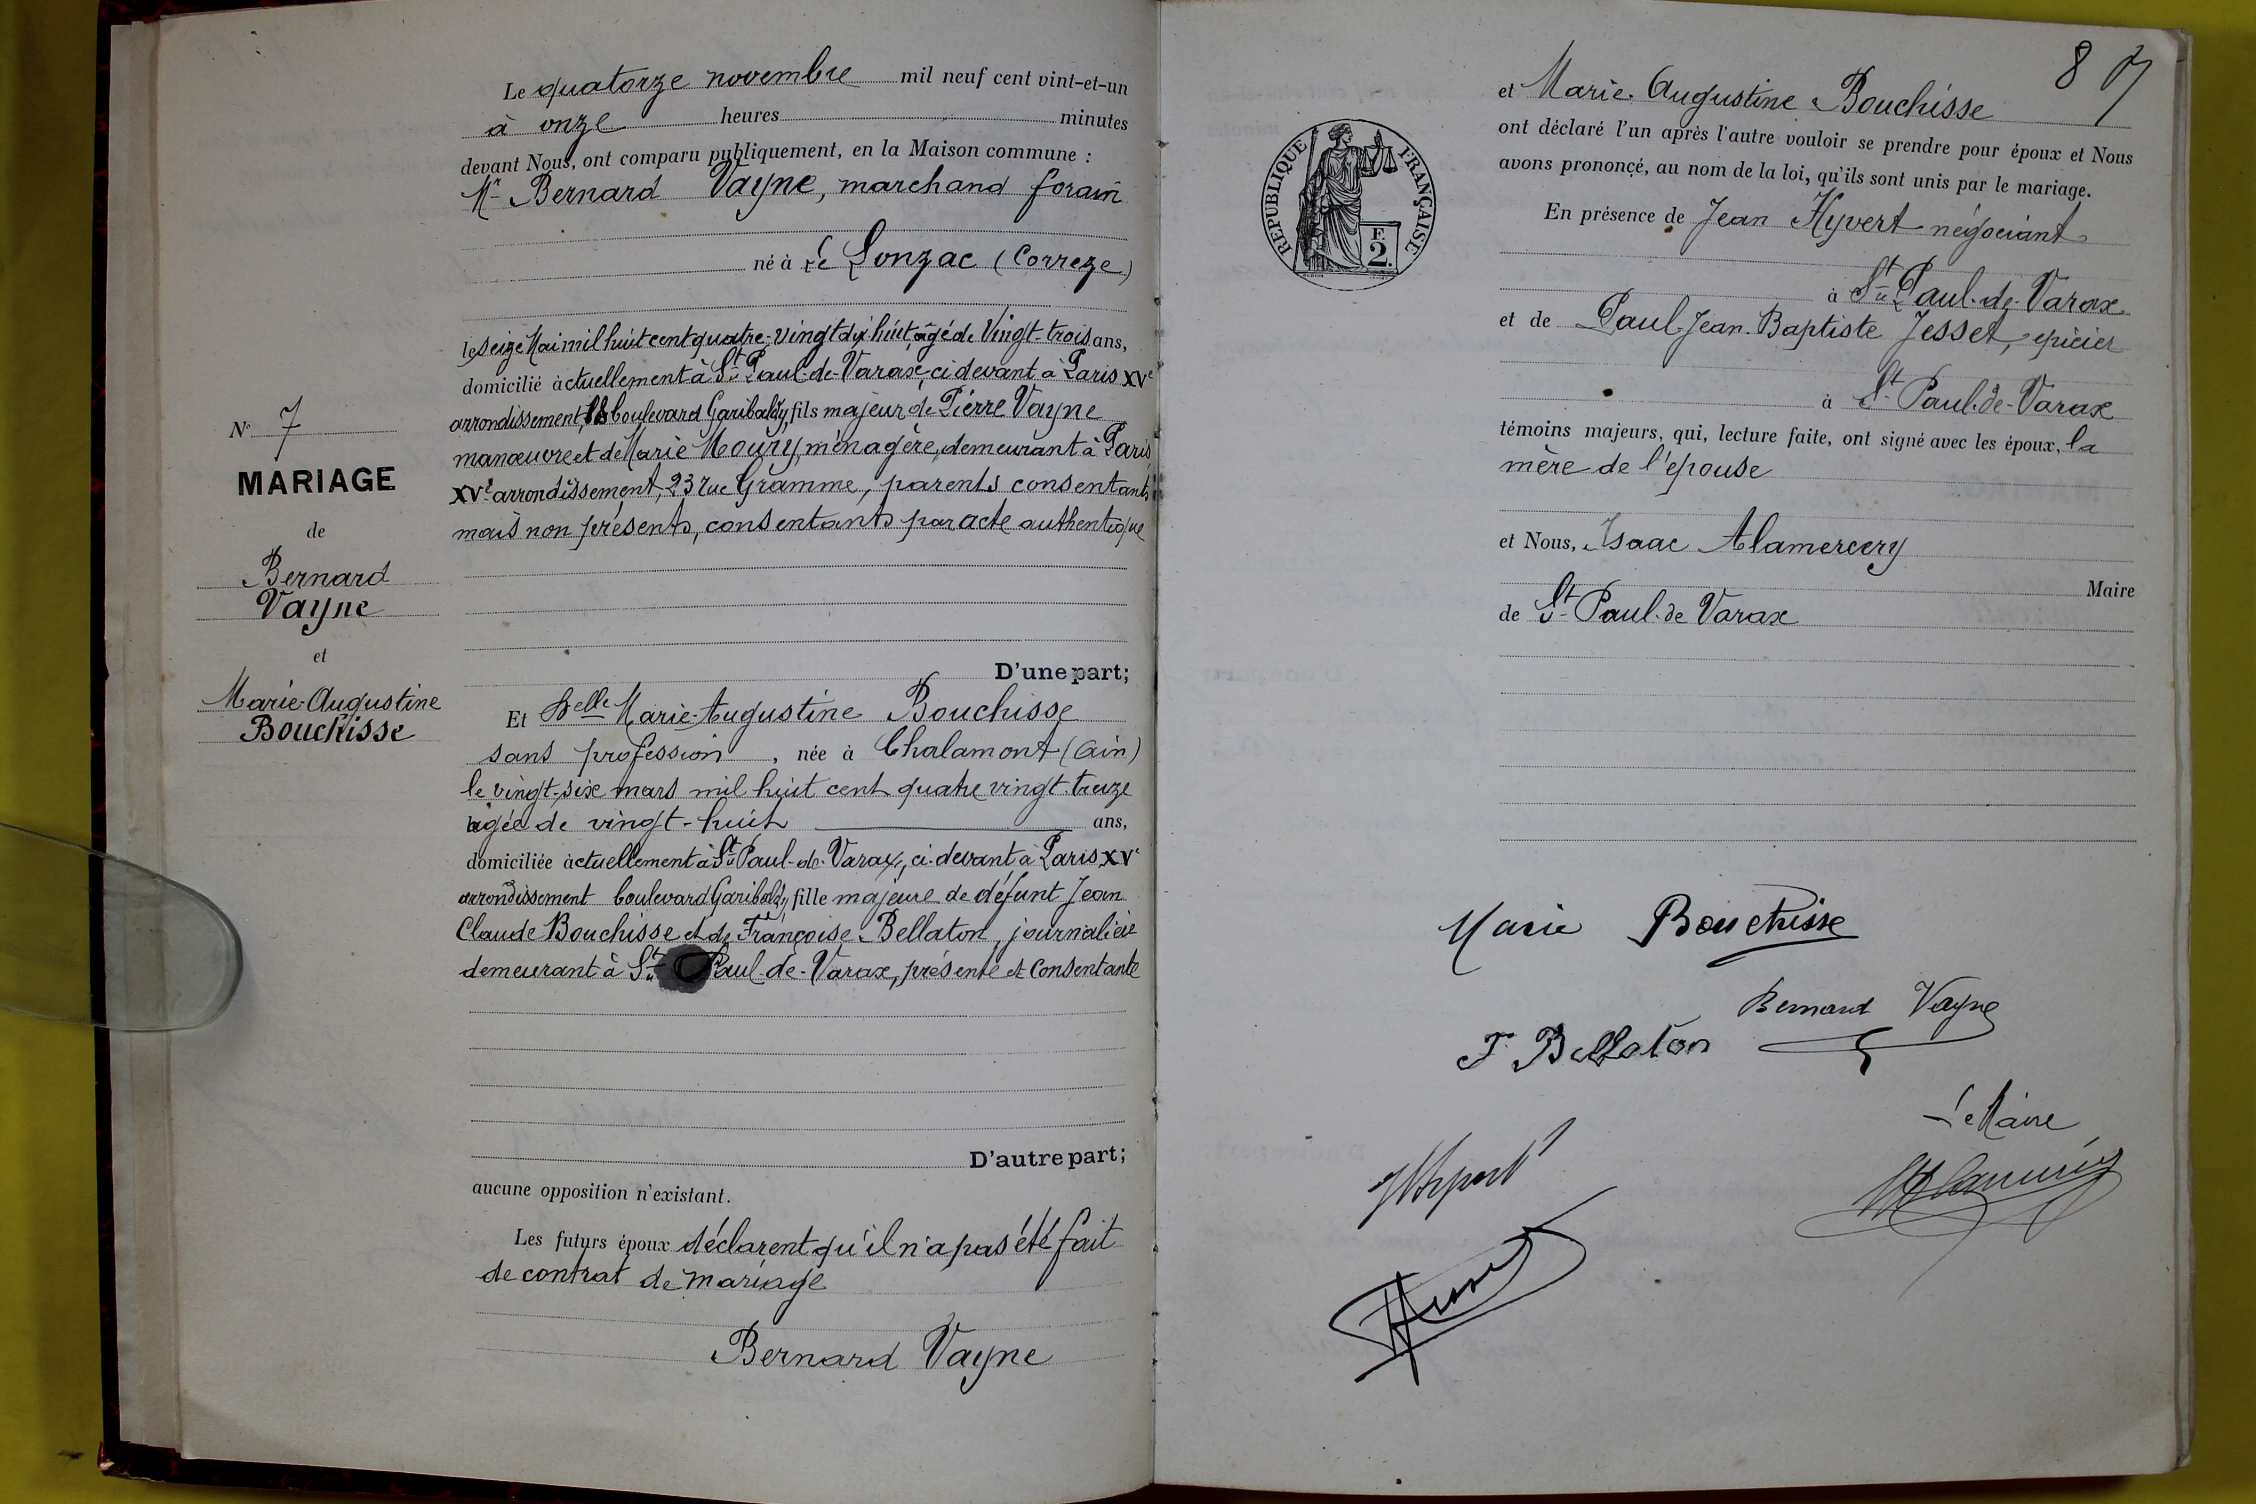 Le quatorze novembre mil neuf cent vint-et-un
à onze heures minutes
devant Nous, ont comparu publiquement, en la Maison commune :
Mr Bernard Vayne, marchand forain
né à Le Lonzac (Correze)
le Seize Mai mil huit cent quatre-vingt dix huit âgé de Vingt-trois ans,
domicilié actuellement à St Paul-de-Varax, ci devant à Paris XVe
arrondissement, boulevard Garibaldy, fils majeur de Pierre Vayne
manœuvre et de Marie Moury, ménagère, demeurant à Paris
XVe arrondissement, 23 rue Gramme, parents consentants
mais non présents, consentants par acte authentique
No 7
MARIAGE
de
Bernard
Vayne
et
Marie-Augustine
Bouchisse
D'une part;
Et Delle Marie-Augustine Bouchisse
sans profession, née à Chalamont (Ain)
le vingt-six mars mil huit cent quatre vingt-treize
agée de vingt-huit ans,
domiciliée actuellement à St Paul-de-Varax, ci-devant à Paris XVe
arrondissement boulevard Garibaldy, fille majeure de défunt Jean
Claude Bouchisse et de Françoise Bellaton, journalière
demeurant à St Paul-de-Varax, présente et consentante
D'autre part;
aucune opposition n'existant.
Les futurs époux déclarent qu'il n'a pas été fait
de contrat de mariage
Bernard Vayne
87
et Marie-Augustine Bouchisse
ont déclaré l'un après l'autre vouloir se prendre pour époux et Nous
avons prononçé, au nom de la loi, qu'ils sont unis par le mariage.
RÉPUBLIQUE FRANÇAISE
F.
2.
En présence de Jean Hyvert négociant
à St Paul-de-Varax
et de Paul-Jean-Baptiste Jesset, epicier
à St Paul-de-Varax
témoins majeurs, qui, lecture faite, ont signé avec les époux, la
mère de l'epouse
et Nous, Isaac Alamercery
Maire
de St Paul-de Varax
Marie Bouchisse
Bernard Vayne
F. Bellaton
Le Maire